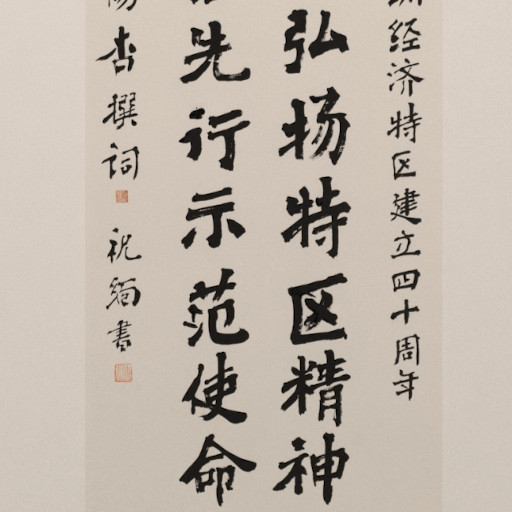 圳经济特区建立四十周年
弘扬特区精神
先行示范使命
杏撰词 祝缅书